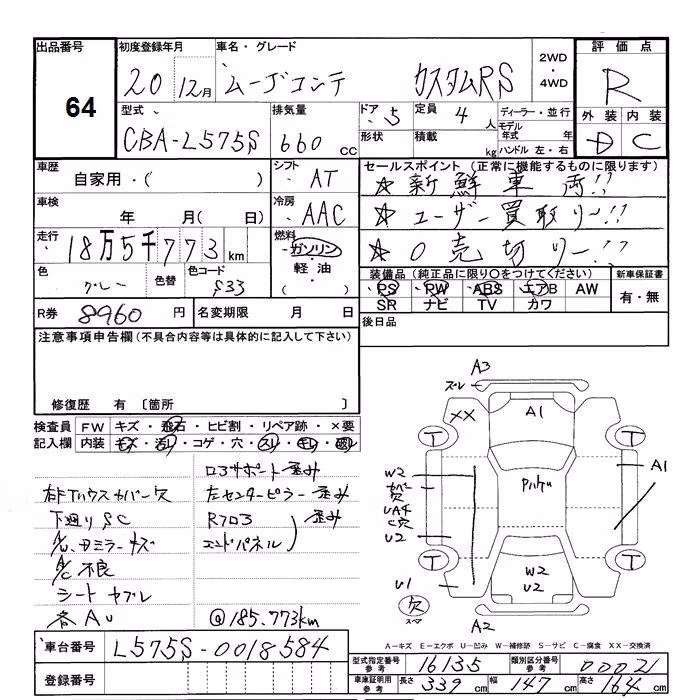 出品番号
64
初度登録年月
20 12月
車名・グレード
ムーヴコンテ カスタムRS
2WD
・
4WD
評価点
R
外装 内装
D C
型式
CBA-L575S
排気量
660 CC
ドア 5
定員 4 人
形状
積載 kg
ディーラー・並行
モデル年式 年
ハンドル 左・右
車歴
自家用・( )
シフト
AT
車検
年 月( 日)
冷房
AAC
走行
18万5千773 km
燃料
ガソリン
軽油
( )
色
グレー
色替
色コード
S33
R券 8960 円
名変期限 月 日
セールスポイント (正常に機能するものに限ります)
☆新鮮車両!!
☆ユーザー買取リー!!
☆0売切リー!!
装備品 (純正品に限り○をつけてください)
PS PW ABS エアB AW
SR ナビ TV カワ
新車保証書
有・無
後日品
注意事項申告欄 (不具合内容等は具体的に記入して下さい)
修復歴 有 〔箇所 〕
検査員記入欄
FW キズ・飛石・ヒビ割・リペア跡・×要
内装 キズ・汚レ・コゲ・穴・スレ・キレ・破レ
コアサポート 歪み
右Fハウスカバー欠
左センターピラー 歪み
下廻りSC
Rフロア
歪み
エンドパネル
A/C不良
シートヤブレ
各AU
@185,773km
車台番号 L575S-0018584
登録番号
A3
ズレ
XX
A1
T
T
W2
カバー欠
UAチ
C穴
U2
PハゲU
A1
T
T
U1
W2
U2
欠
スマ
A2
A-キズ E-エクボ U-凹み W-補修跡 S-サビ C-腐食 XX-交換済
型式指定番号 参考 16135
類別区分番号 参考 00021
車庫証明用 参考
長さ 339 cm
幅 147 cm
高さ 164 cm